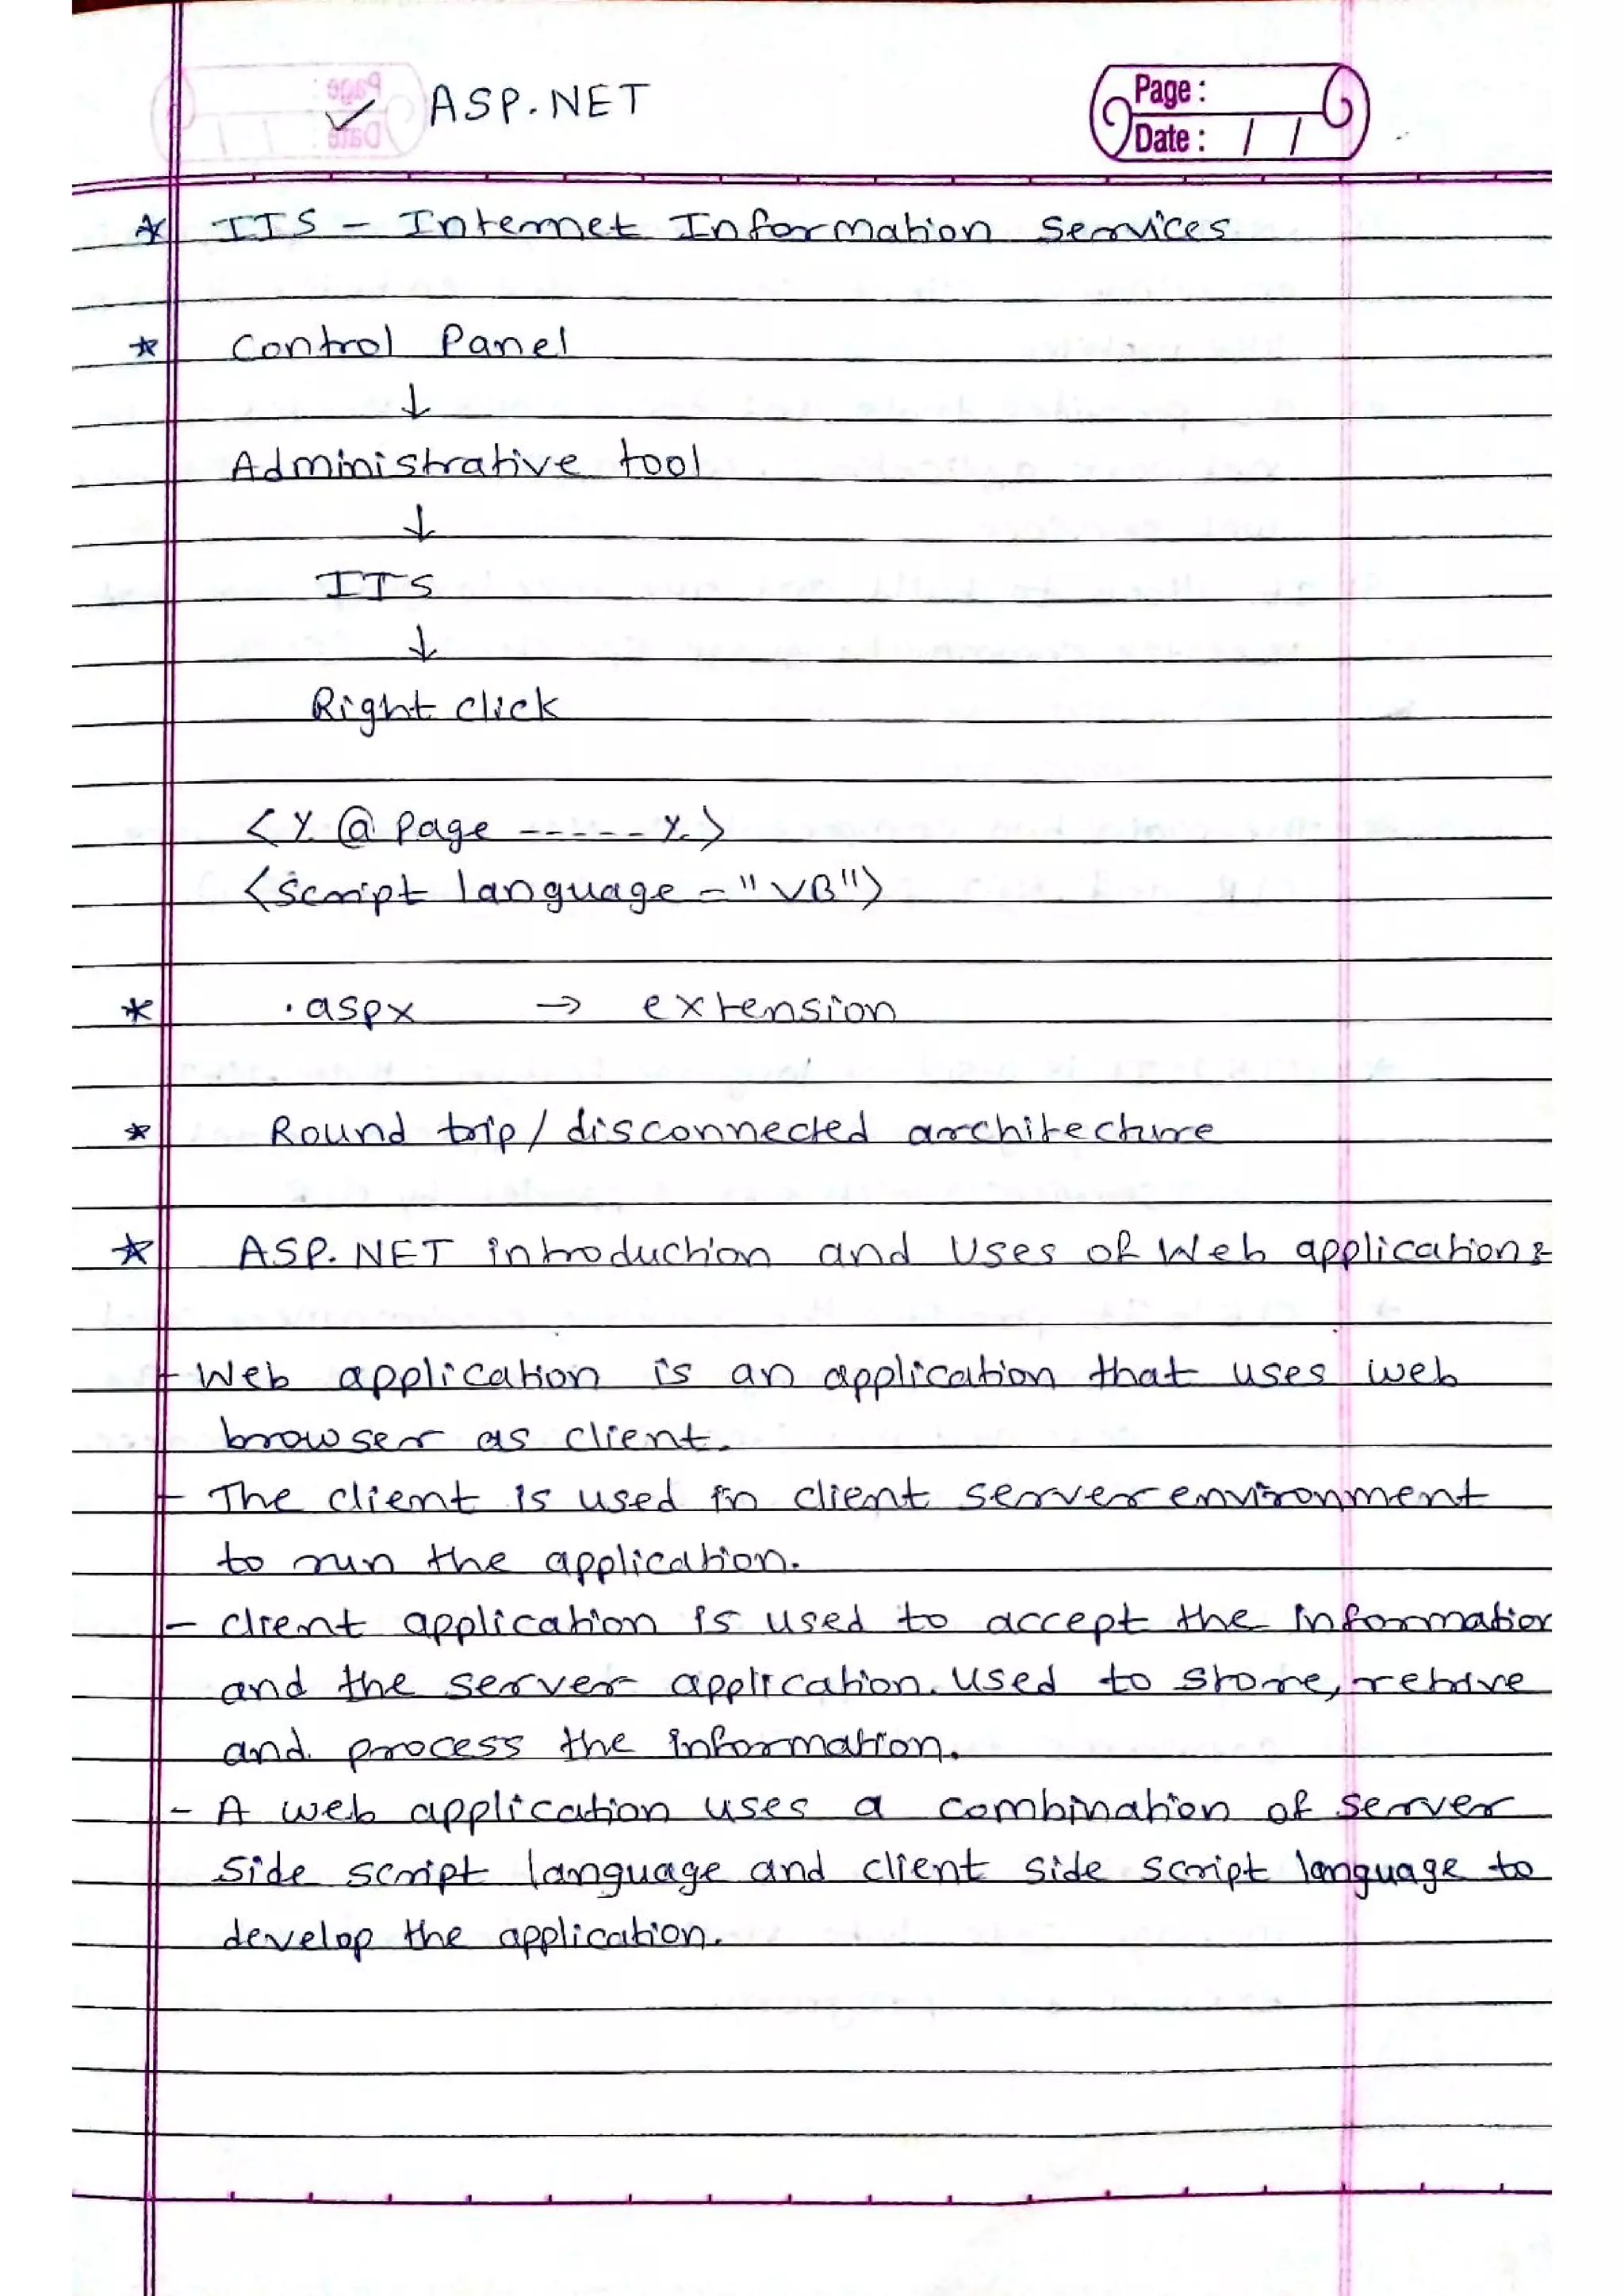 ✓ ASP.NET
Page :
Date : / /
* IIS - Internet Information Services
* Control Panel
↓
Administrative tool
↓
IIS
↓
Right click
<% @ Page ----- %>
<script language = "VB">
* .aspx → extension
* Round trip / disconnected architecture
* ASP.NET introduction and Uses of Web application :-
- Web application is an application that uses web
browser as client.
- The client is used in client server environment
to run the application.
- client application is used to accept the information
and the server application. used to store, retrive
and process the information.
- A web application uses a combination of server
side script language and client side script language to
develop the application.